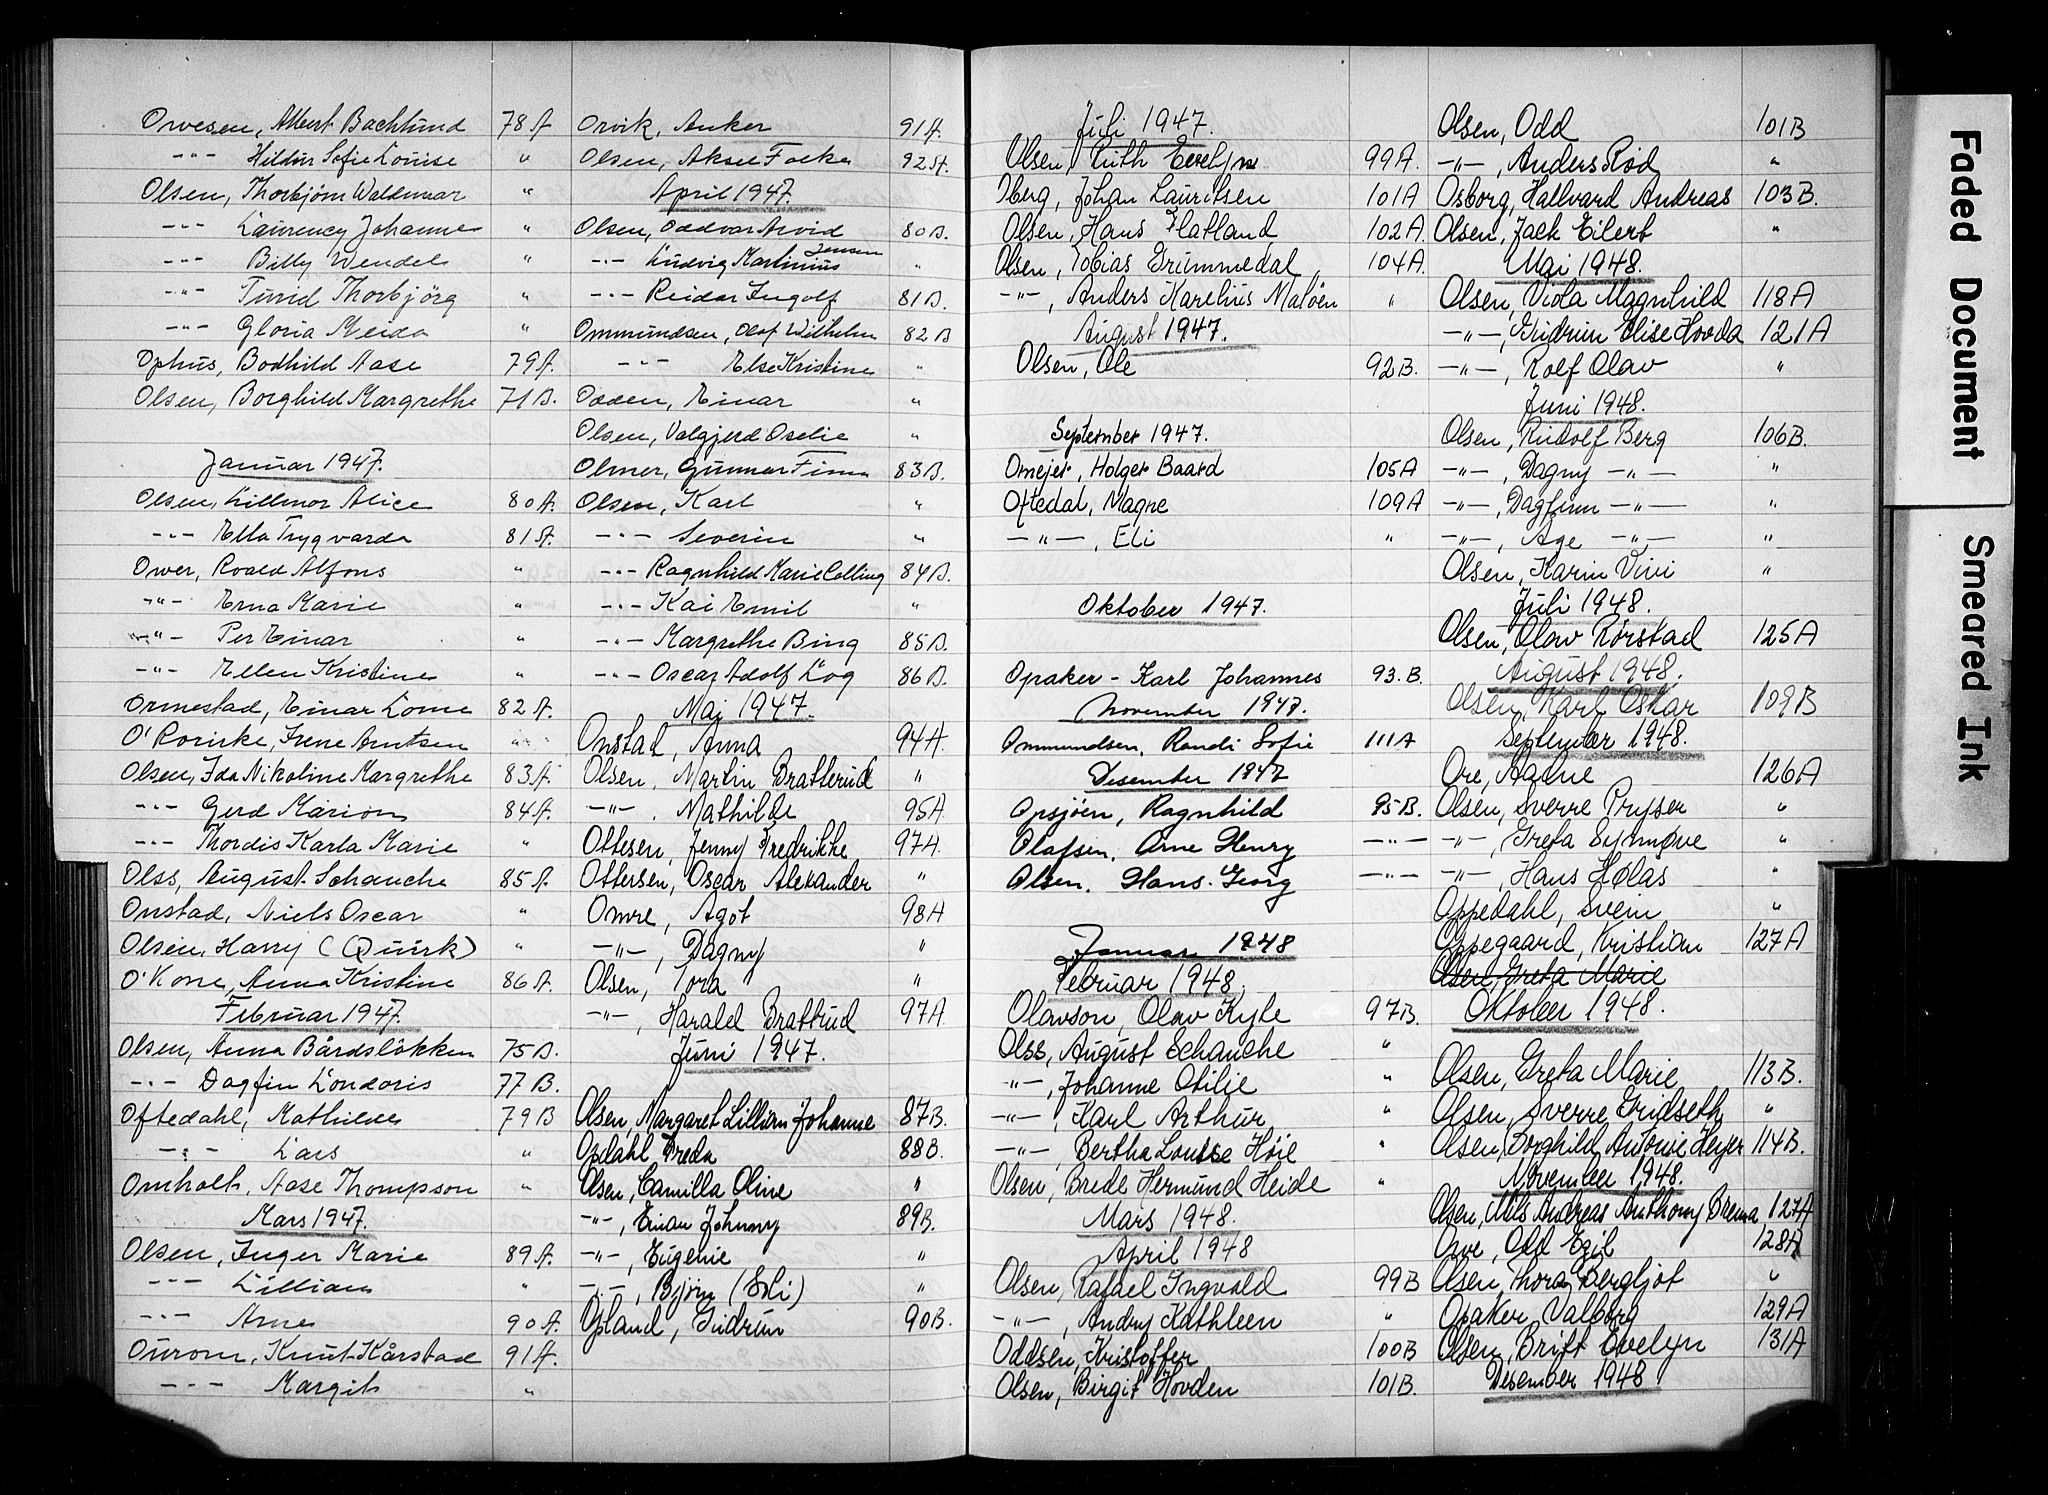 Orvesen, Albert Bachlund 78 A.
-"- Hildur Sofie Louise "
Olsen, Thorbjörn Waldemar "
-"- Laurency Johanne "
-"- Billy Wendel "
-"- Turid Thorbjörg "
-"- Gloria Meida "
Ophus, Bodhild Aase 79 A.
Olsen, Borghild Margrethe 71 B.
Januar 1947.
Olsen, Lillemor Alice 80 A.
-"- Ella Trygvarda 81 A.
Ower, Roald Alfons "
-"- Erna Marie "
-"- Per Einar "
-"- Ellen Kristine "
Ormestad, Einar Lome 82 A.
O'Rorirke, Irene Arntsen "
Olsen, Ida Nikoline Margrethe 83 A.
-"- Gerd Marion 84 A.
-"- Thordis Karla Marie "
Olss, August Schanche 85 A.
Onstad, Niels Oscar "
Olsen, Harry (Quirk) "
O'Kone, Anna Kristine 86 A.
Februar 1947.
Olsen, Anna Bårdsløkken 75 B.
-"- Dagfin Londoris 77 B.
Oftedahl, Mathilde 79 B
-"- Lars "
Omholt, Aase Thompson "
Mars 1947.
Olsen, Inger Marie 89 A.
-"- Lillian "
-"- Arne 90 A.
Ourom, Knut Kårstad 91 A.
-"- Margit "
Orvik, Anker 91 A.
Olsen, Aksel Falck 92 A.
April 1947.
Olsen, Oddvar Arvid 80 B.
-"- Ludvig Martinius Jensen "
-"- Reidar Ingolf 81 B.
Ommundsen, Olaf Wilhelm 82 B
-"- Else Kristine "
Odden, Einar "
Olsen, Valgjerd Oselie "
Olmer, Gunnar Finn 83 B.
Olsen, Karl "
-"- Severin "
-"- Ragnhild Marie Colling 84 B.
-"- Kai Emil "
-"- Margrethe Bing 85 B.
-"- Oscar Adolf Log 86 B.
Mai 1947.
Onstad, Anna 94 A
Olsen, Martin Bratterud "
-"-, Mathilde 95A
Ottesen, Jenny Fredrikke 97A.
Ottersen, Oscar Alexander "
Omre, Agot 98 A
-"-, Dagny "
Olsen, Tora "
-"-, Harald Brattrud 97A
Juni 1947.
Olsen, Margaret Lillian Johanne 87B.
Opdahl Freda 88B.
Olsen, Camilla Oline "
-"-, Einar Johnny 89B.
-"-, Eugenie "
-"-, Björn (Soli) "
Opland, Gudrun 90B.
Juli 1947.
Olsen, Ruth Evelyn 99A.
Oberg, Johan Lauritsen 101A
Olsen, Hans Flatland 102A.
Olsen, Tobias Grummedal 104A.
-"-, Anders Karelius Maløen "
August 1947.
Olsen, Ole 92B.
September 1947.
Omejer, Holger Baard 105A
Oftedal, Magne 109A
-"-, Eli "
Oktober 1947.
Opaker - Karl Johannes 93.B.
November 1947.
Ommundsen, Randi Sofie 111A
Desember 1947
Opsjøen, Ragnhild 95B.
Olafsen, Arne Henry -"-
Olsen, Hans Georg -"-
Januar 1948
Februar 1948.
Olavson, Olav Kyle 97B.
Olss, August Schanche "
-"-, Johanne Otilie "
-"-, Karl Arthur "
-"-, Bertha Louise Høie "
Olsen, Brede Hermund Heide "
Mars 1948.
April 1948
Olsen, Rafael Ingvald 99B
-"-, Andrey Kathleen "
Oddsen, Kristoffer 100B
Olsen, Birgit Hovden 101B.
Olsen, Odd 101B
-"-, Anders Rød "
Osborg, Hallvard Andreas 103B.
Olsen, Jack Eilert "
Mai 1948.
Olsen, Viola Magnhild 118A
-"-, Gudrun Elise Hovda 121A
-"-, Rolf Olav "
Juni 1948.
Olsen, Rudolf Berg 106B.
-"-, Dagny -"- "
-"-, Dagfinn -"- "
-"-, Åge -"- "
Olsen, Karin Vivi "
Juli 1948.
Olsen, Olav Rörstad 125A
August 1948.
Olsen, Karl Oskar 109B
September 1948.
Ore, Aadne 126A
Olsen, Sverre Pryser "
-"-, Greta Synnøve "
-"-, Hans Holås "
Oppedahl, Svein "
Oppegaard, Kristian 127A
Olsen, Greta Marie
Oktober 1948.
Olsen, Greta Marie 113B.
Olsen, Sverre Gridseth "
Olsen, Borghild Antonie Heyer 114B.
November 1948.
Olsen, Nils Andreas Anthony Brema 127A
Orve, Odd Egil 128A
Olsen, Thora Bergljot "
Opaker, Valborg 129A
Olsen, Britt Evelyn 131A
Desember 1948
Faded Document
Smeared Ink